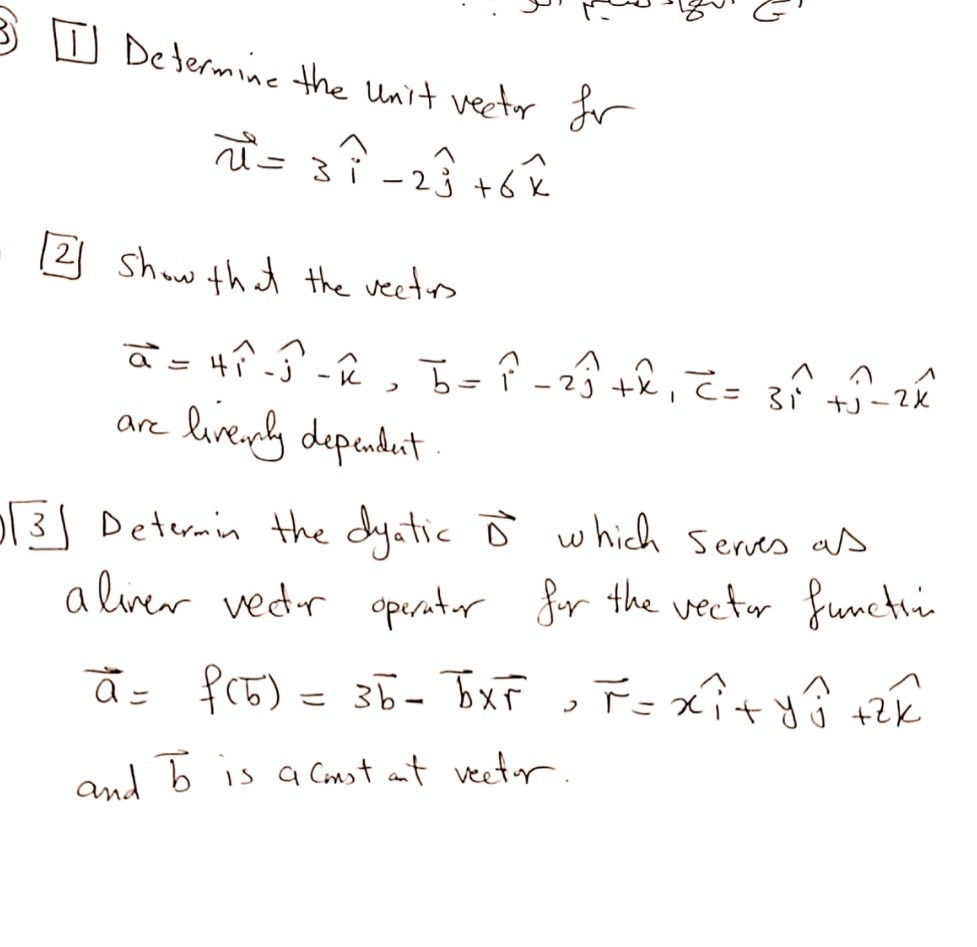 3 1 Determine the unit vector for
u⃗ = 3î - 2ĵ + 6k̂
2 Show that the vectors
a⃗ = 4î - ĵ - k̂ , b̄ = î - 2ĵ + k̂ , c̄ = 3î + ĵ - 2k̂
are linearly dependent.
3 Determin the dyatic D⃗ which serves as
a linear vector operator for the vector function
a⃗ = f(b̄) = 3b̄ - b̄ x r̄ , r̄ = xî + yĵ + zk̂
and b̄ is a constant vector.